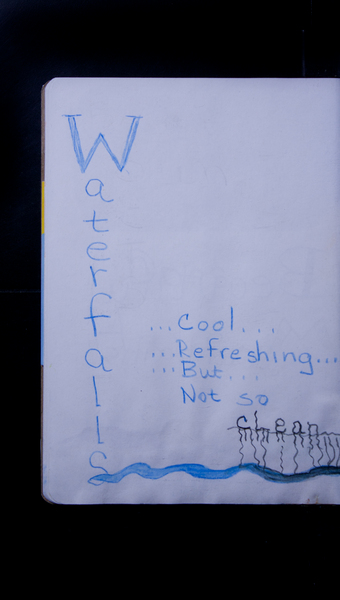 Waterfalls
...Cool...
...Refreshing...
...But...
Not so
clean